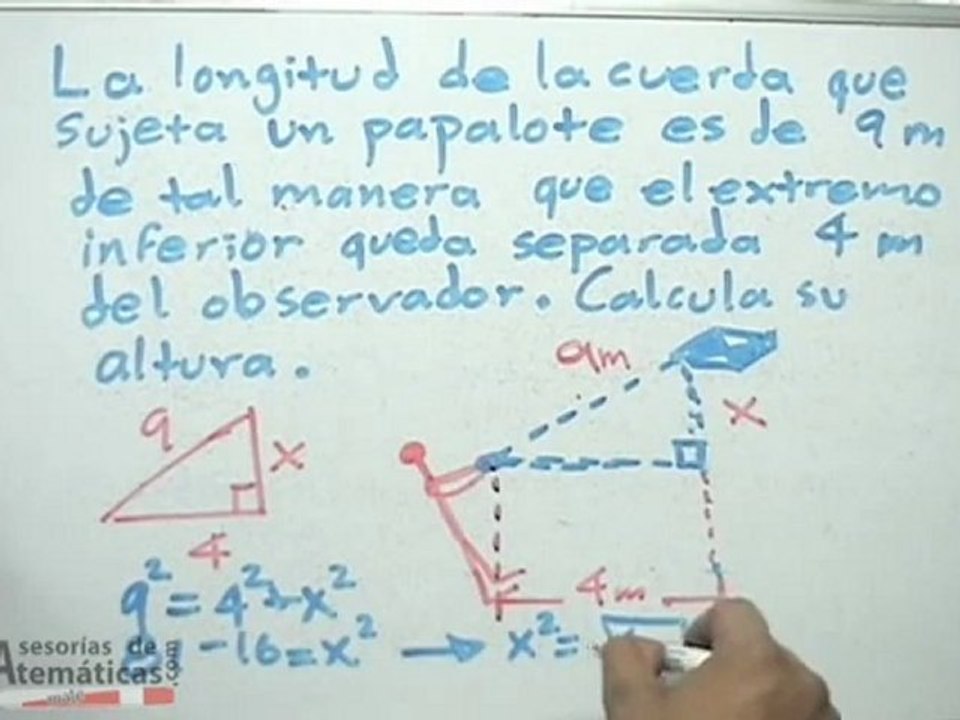 La longitud de la cuerda que
sujeta un papalote es de 9 m
de tal manera que el extremo
inferior queda separada 4 m
del observador. Calcula su
altura.
9m
x
9
x
4
4m
9² = 4² + x²
-16 = x² → x² =
Asesorías de
Matemáticas.com